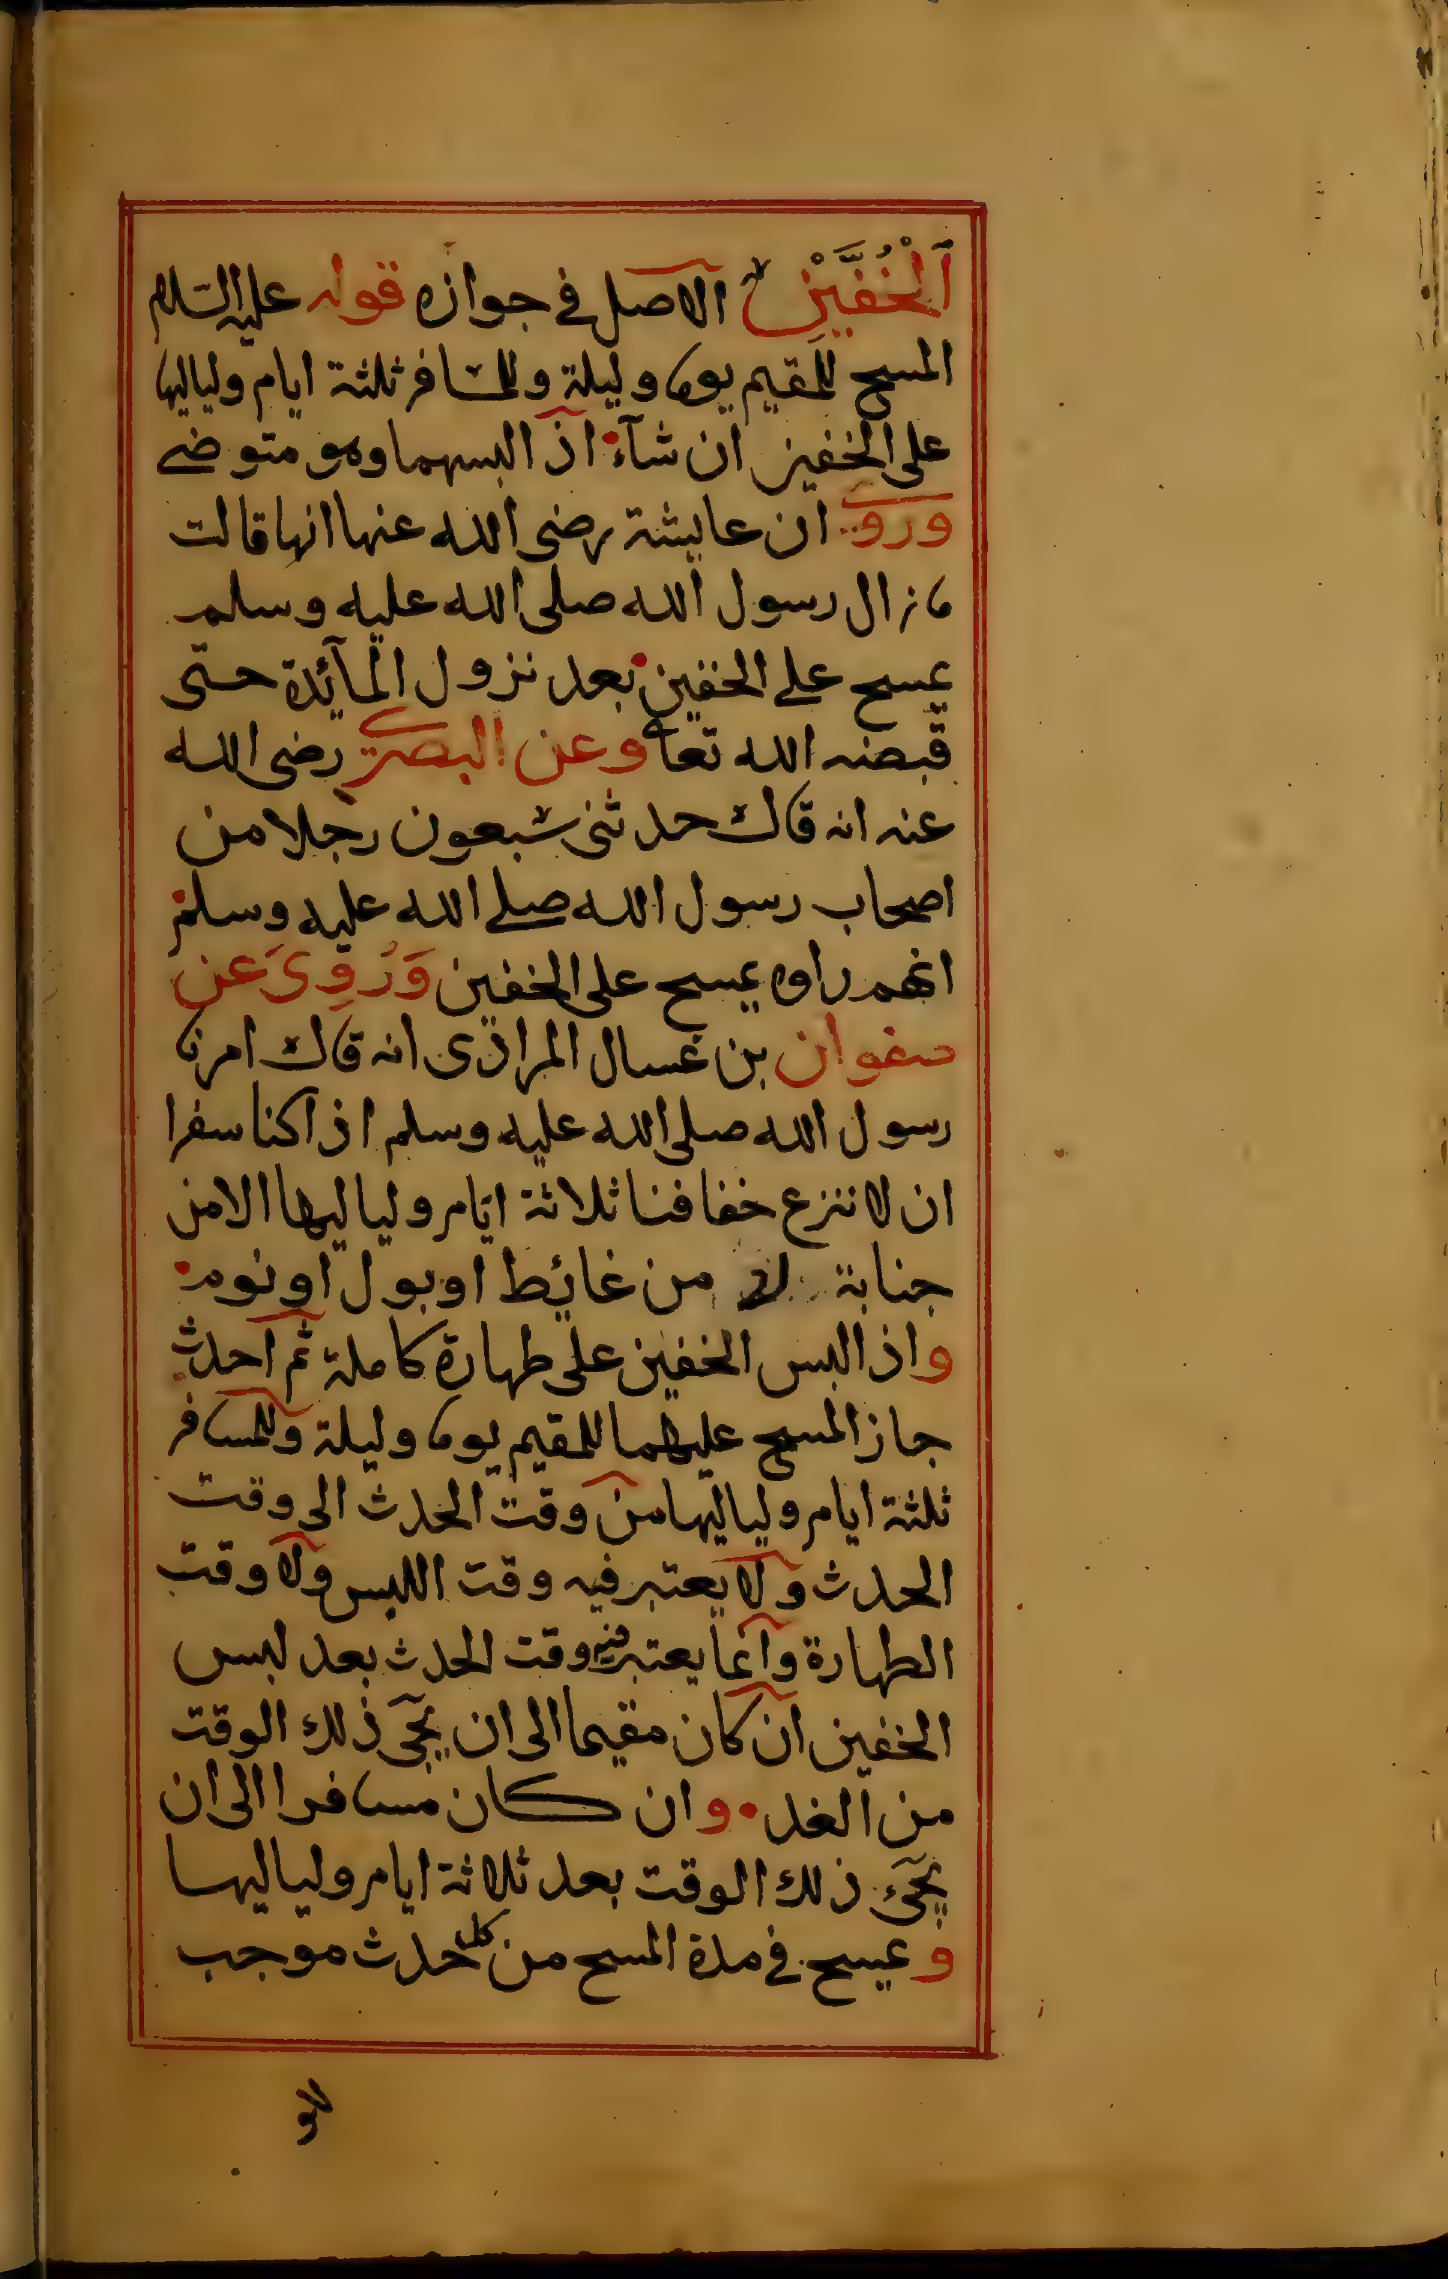 اَلْخُفَّيْنِ الاصل فى جوازه قوله عليه السلام
المسح للمقيم يوما وليلة وللمسافر ثلثة ايام ولياليها
على الخفين ان شآء اذا لبسهما وهو متوضى
وروى ان عايشة رضى الله عنها انها قالت
ما زال رسول الله صلى الله عليه وسلم
يمسح على الخفين بعد نزول المآئدة حتى
قبضه الله تعا وعن البصرى رضى الله
عنه انه قال حدثنى سبعون رجلا من
اصحاب رسول الله صلى الله عليه وسلم
انهم راوه يمسح على الخفين وَرُوِىَ عن
صفوان بن غسال المرادى انه قال امرنا
رسول الله صلى الله عليه وسلم اذا كنا سفرا
ان لا ننزع خفافنا ثلاثة ايام ولياليها الا من
جنابة من غائط او بول او نوم
واذا لبس الخفين على طهارة كاملة ثم احدث
جاز المسح عليهما للمقيم يوما وليلة وللمسافر
ثلثة ايام ولياليها من وقت الحدث الى وقت
الحدث ولا يعتبر فيه وقت اللبس ولا وقت
الطهارة وانما يعتبر فيه وقت الحدث بعد لبس
الخفين ان كان مقيما الى ان يجئ ذلك الوقت
من الغد وان كان مسافرا الى ان
يجئ ذلك الوقت بعد ثلاثة ايام ولياليها
و يمسح فى مدة المسح من كل حدث موجب